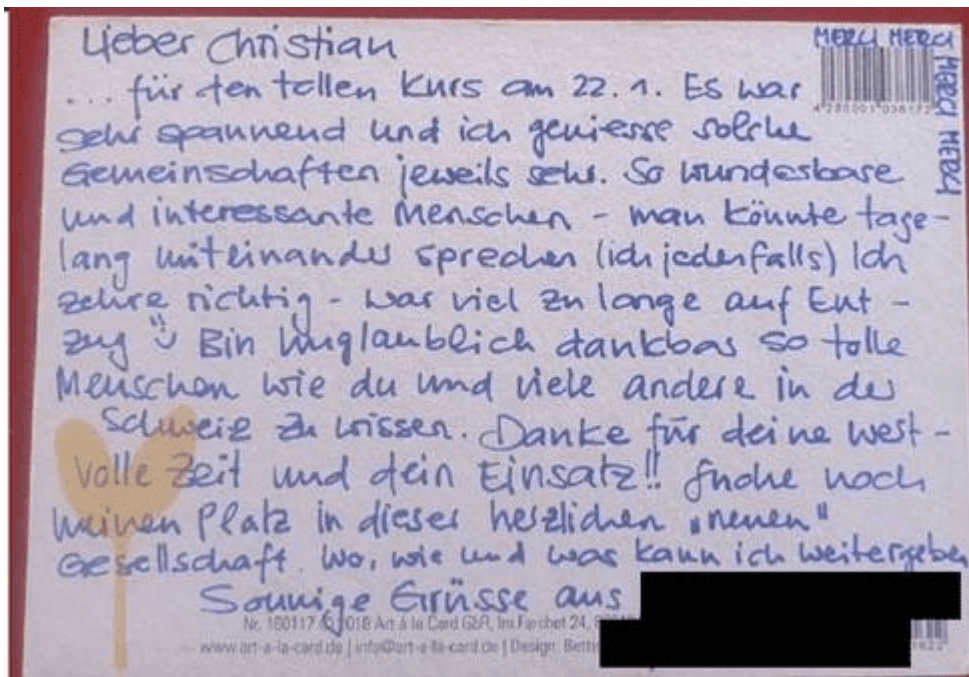 Lieber Christian
MERCI MERCI
MERCI MERCI
... für den tollen Kurs am 22.1. Es war
sehr spannend und ich geniesse solche
Gemeinschaften jeweils sehr. So wunderbare
und interessante Menschen - man könnte tage-
lang miteinander sprechen (ich jedenfalls) Ich
zehre richtig - war viel zu lange auf Ent-
zug Bin unglaublich dankbar so tolle
Menschen wie du und viele andere in der
Schweiz zu wissen. Danke für deine wert-
volle Zeit und dein Einsatz!! Suche noch
meinen Platz in dieser herzlichen „neuen"
Gesellschaft. Wo, wie und was kann ich weitergeben
Sonnige Grüsse aus
Nr. 180117 / © 2018 Art à la Card GbR, Im Farchet 24,
www.art-a-la-card.de | info@art-a-la-card.de | Design: